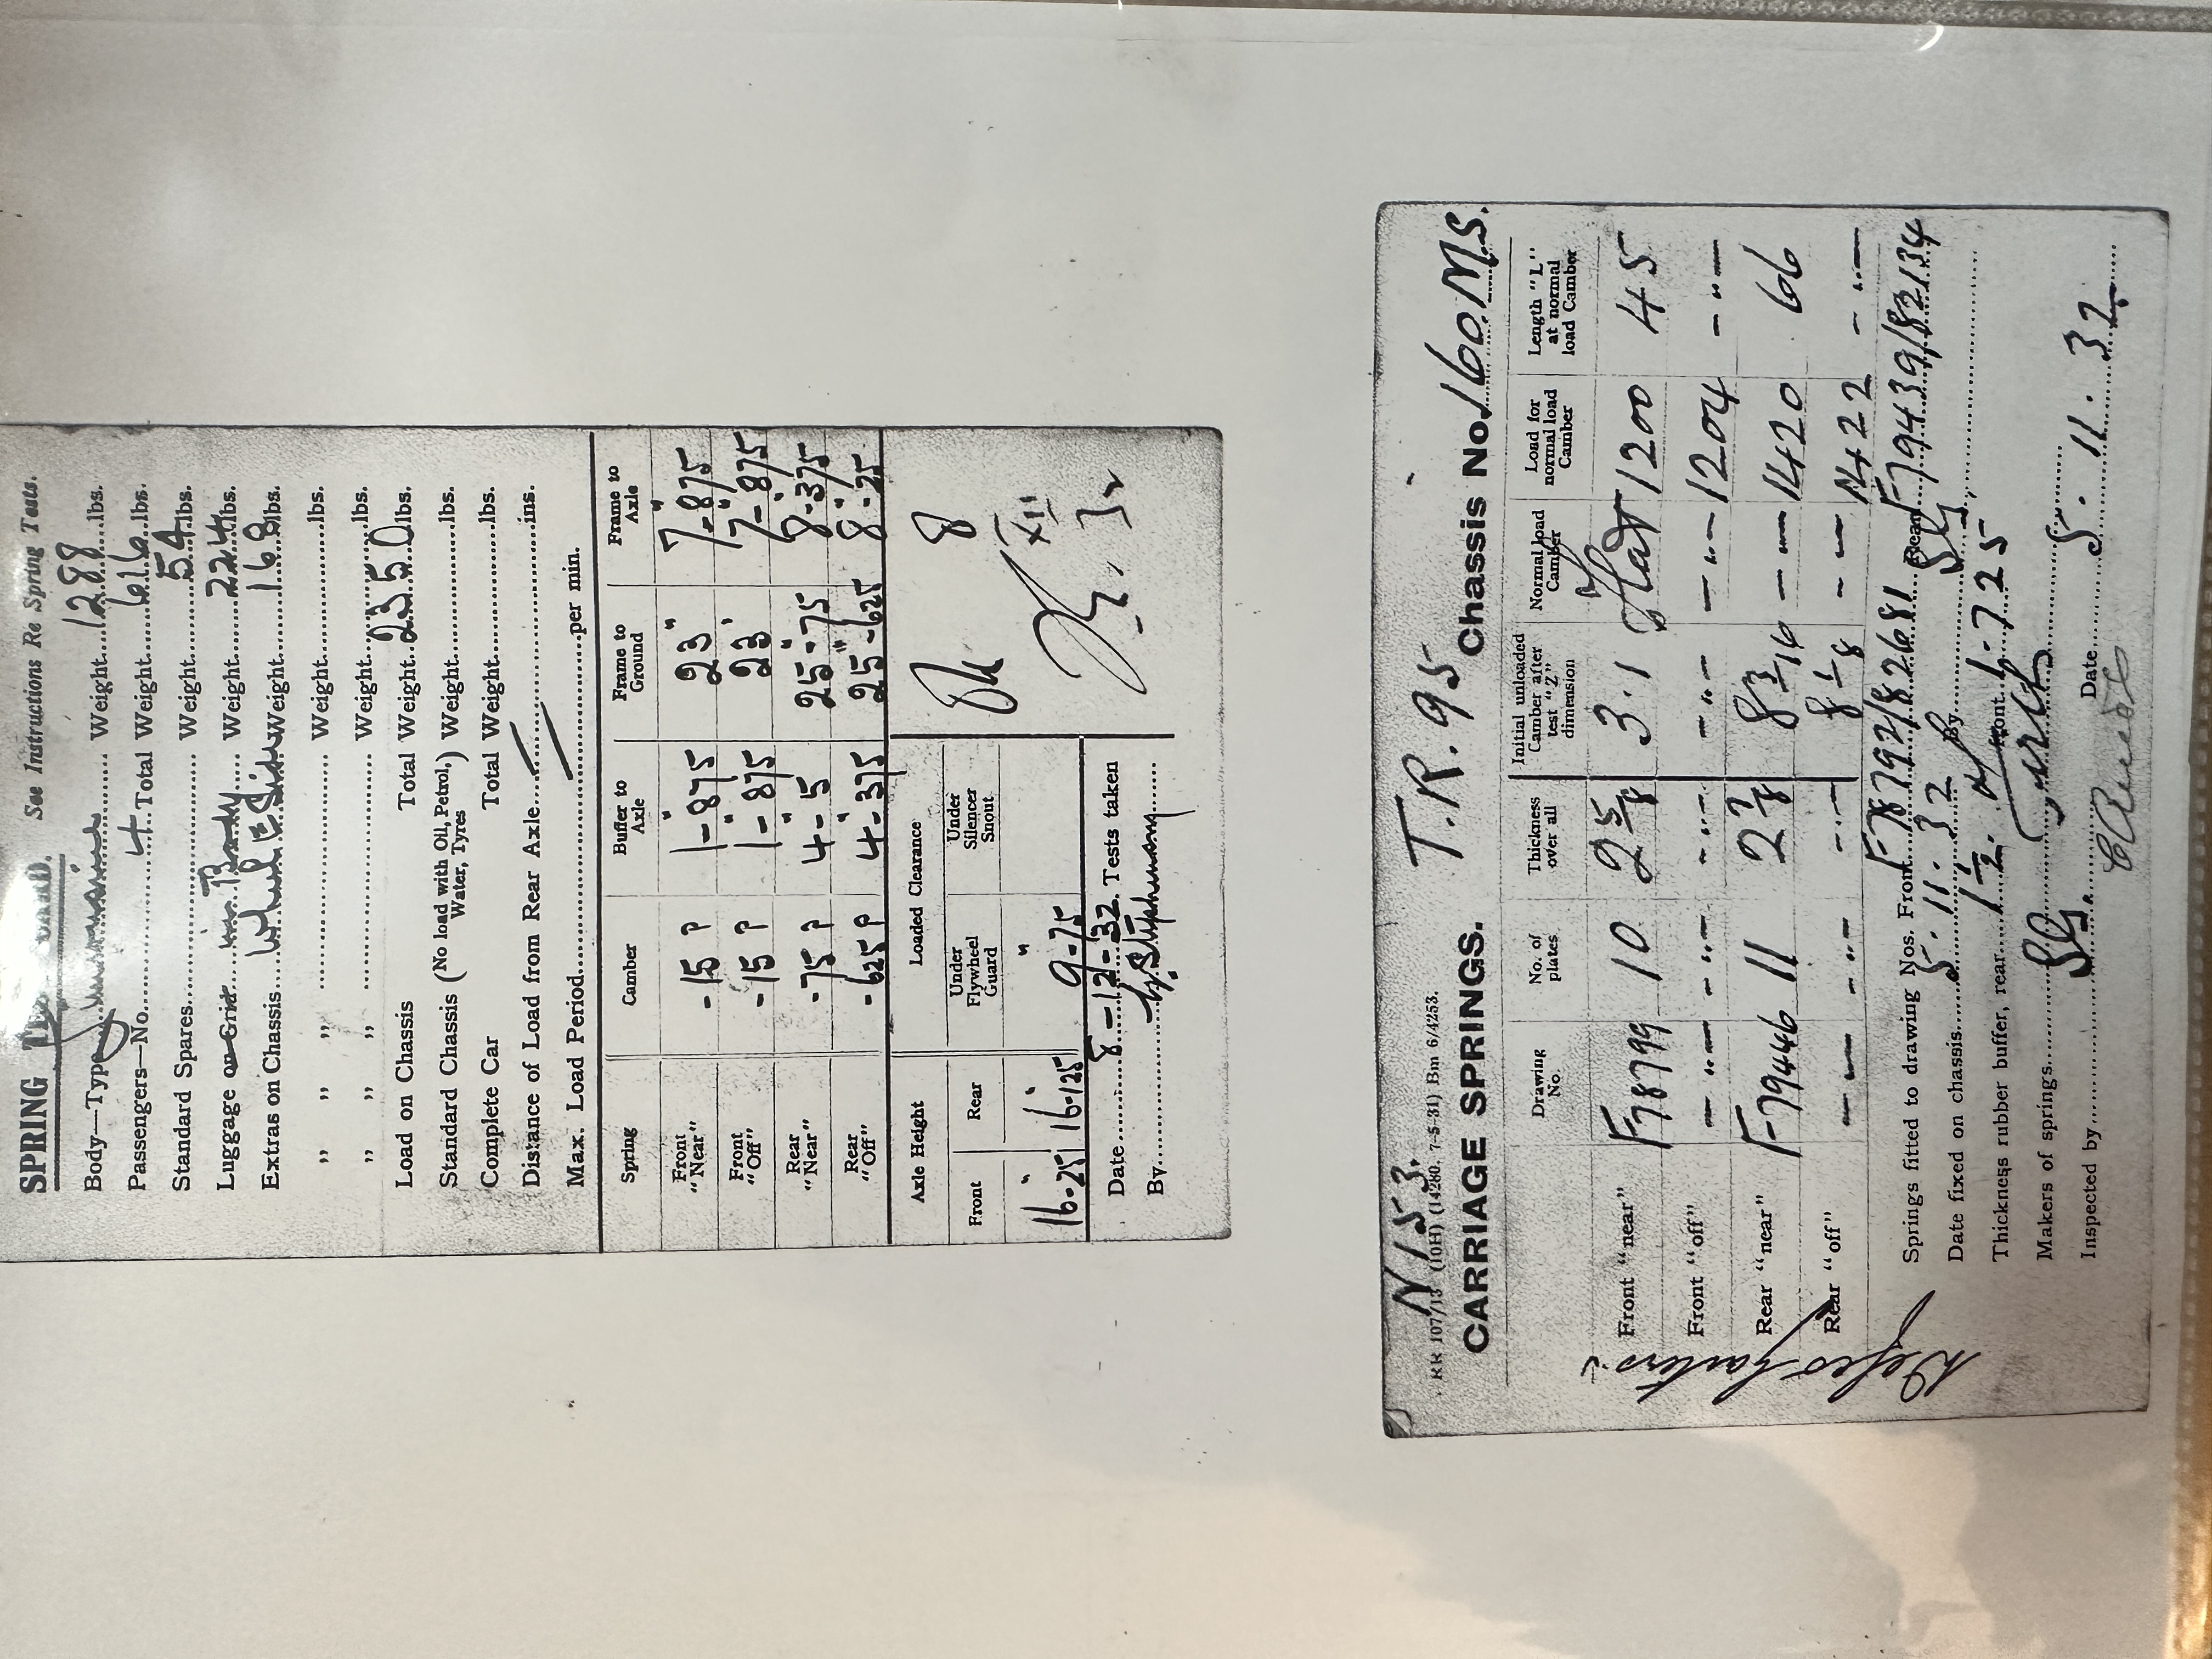 SPRING TEST CARD. See Instructions Re Spring Tests.
Body—Type Weight 1288 lbs.
Passengers—No. 4 Total Weight 616 lbs.
Standard Spares Weight 54 lbs.
Luggage on Grid in Body Weight 224 lbs.
Extras on Chassis Weight 168 lbs.
,, ,, ,, Weight lbs.
,, ,, ,, Weight lbs.
Load on Chassis Total Weight 2350 lbs.
Standard Chassis (No load with Oil, Petrol, Water, Tyres) Weight lbs.
Complete Car Total Weight lbs.
Distance of Load from Rear Axle ins.
Max. Load Period per min.
Spring Camber Buffer to Axle Frame to Ground Frame to Axle
Front "Near" -15 P 1-875 23" 7-875
Front "Off" -15 P 1-875 23" 7-875
Rear "Near" -75 P 4-5 25-75 8-375
Rear "Off" -625 P 4-375 25-625 8-25
Axle Height Loaded Clearance
Front Rear Under Flywheel Guard Under Silencer Snout
16-25 16-125 9-75
8
XII
32
Date 8-12-32 Tests taken
By
N153.
RR 107/13 (10H) (14280. 7-5-31) Bm 6/4253.
T.R. 95
CARRIAGE SPRINGS. Chassis No. 160.M.S.
Drawing No. No. of plates Thickness over all Initial unloaded Camber after test "Z" dimension Normal load Camber Load for normal load Camber Length "L" at normal load Camber
Front "near" F78799 10 2 5/8 3.1 Flat 1200 45
Front "off" -"- -"- -"- -"- -"- 1204 -"-
Rear "near" F-79446 11 2 7/8 8 3/16 -"- 1420 66
Rear "off" -"- -"- -"- 8 1/8 -"- 1422 -"-
Springs fitted to drawing Nos. Front F78792/82681 Rear F79439/82134
Date fixed on chassis 5.11.32 By SG
Thickness rubber buffer, rear 1 1/2. front 1.725
Makers of springs
Inspected by SG. Date 5.11.32